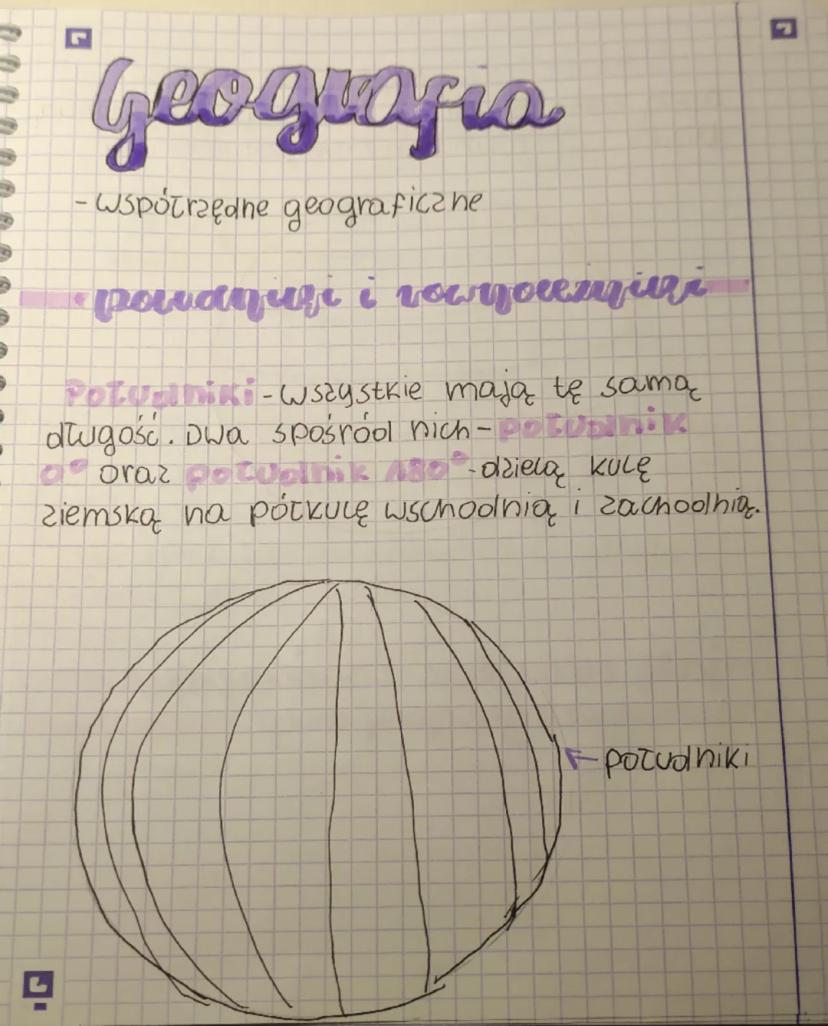 Geografia
- współrzędne geograficzne
południki i równoleżniki
Południki - wszystkie mają tę samą
długość. Dwa spośród nich - południk
0° oraz południk 180° - dzielą kulę
ziemską na półkulę wschodnią i zachodnią.
południki